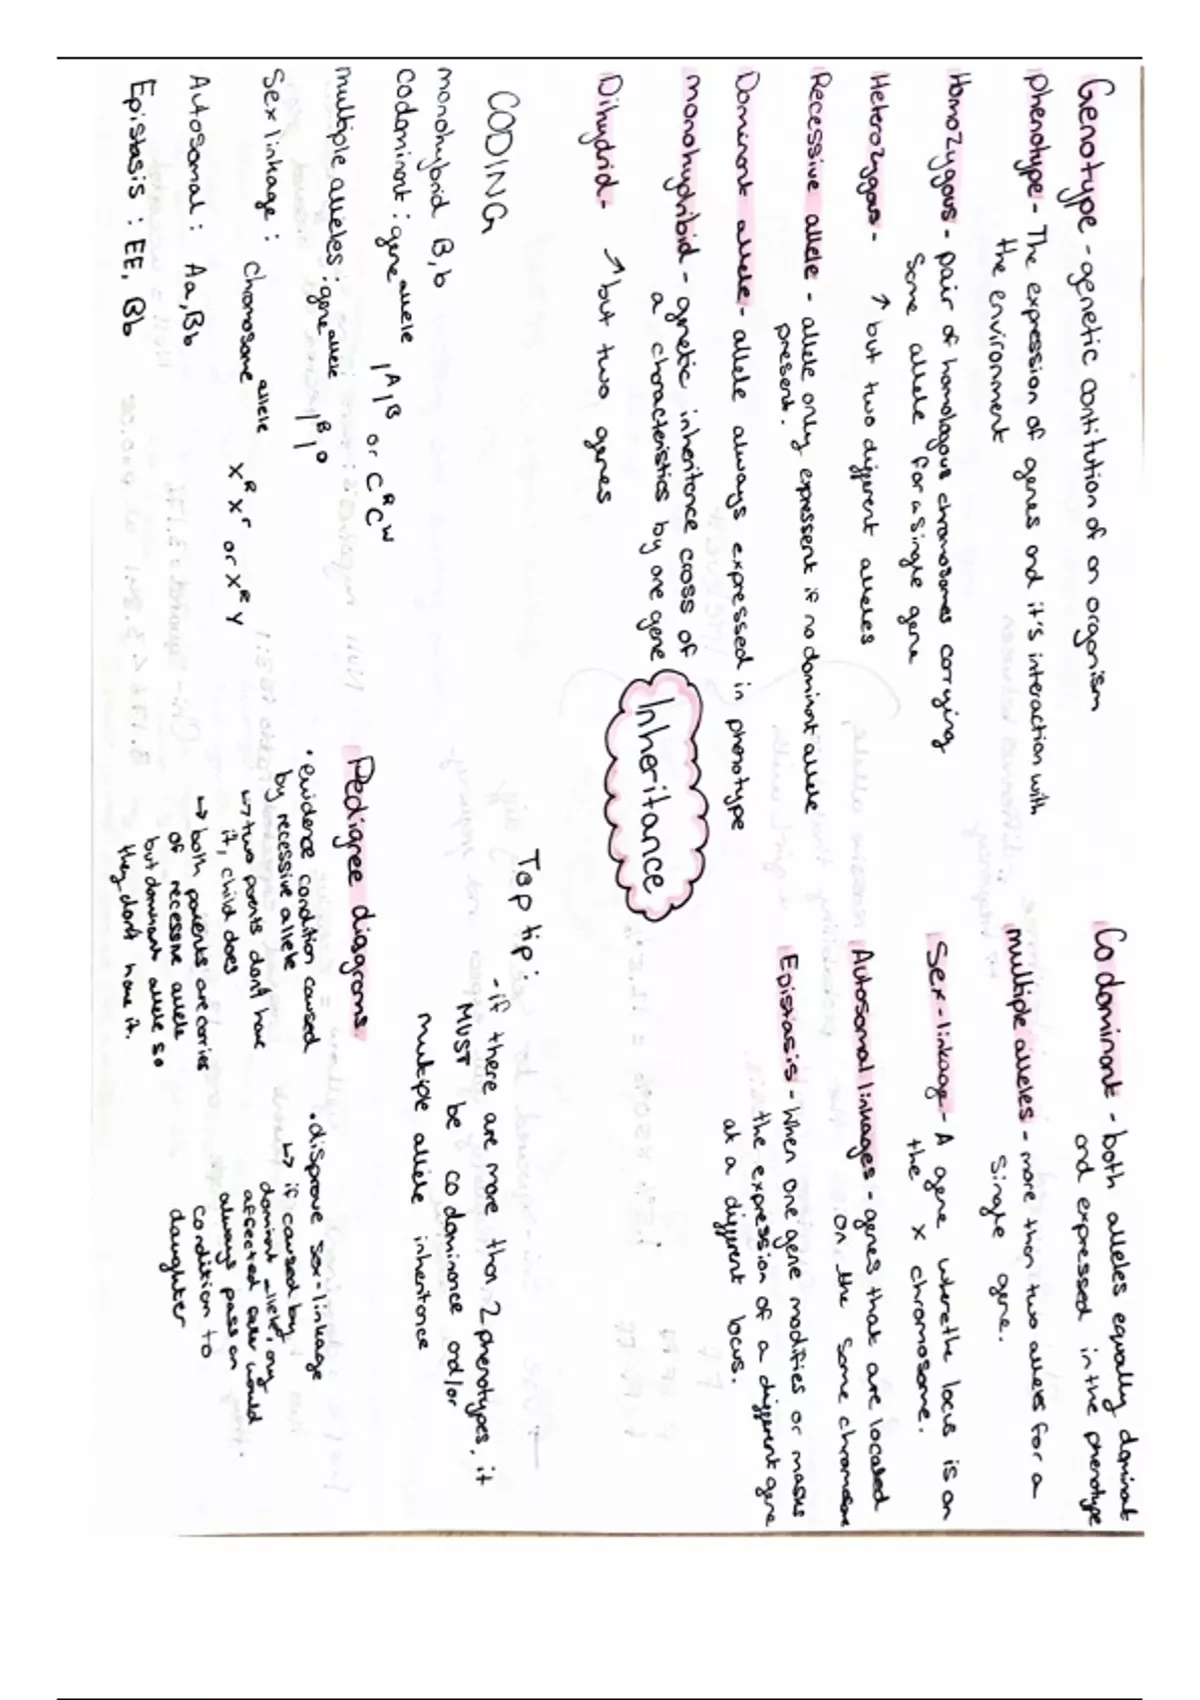 Genotype - genetic contitution of an organism
phenotype - The expression of genes and it's interaction with
the environment
Homozygous - pair of homologous chromosomes carrying
Same allele for a single gene
Heterozygous - ↑ but two different alleles
Recessive allele - allele only expressent if no dominant allele
present.
Dominant allele - allele always expressed in phenotype
monohydribid - genetic inheritance cross of
a characteristics by one gene
Dihydrid - ↑ but two genes
CODING
monohybrid B, b
codominant : gene allele IᴬIᴮ or CᴿCᵂ
multiple alleles : gene allele Iᴮ Iᴼ
Sex linkage : chromosome allele Xᴿ Xʳ or Xᴿ Y
Autosomal : Aa, Bb
Epistasis : EE, Bb
Inheritance
Co dominant - both alleles equally dominant
and expressed in the phenotype
multiple alleles - more than two alleles for a
single gene.
Sex-linkage - A gene where the locus is on
the X chromosome.
Autosomal linkages - genes that are located
on the same chromosome
Epistasis - When one gene modifies or masks
the expression of a different gene
at a different locus.
Top tip :
- if there are more than 2 phenotypes, it
MUST be co dominance and/or
multiple allele inheritance
Pedigree diagrams
• evidence condition caused
by recessive allele
↳ two parents don't have
it, child does
↳ both parents are carries
of recessive allele
but dominant allele so
they don't have it.
• disprove sex-linkage
↳ if caused by
dominant allele, any
affected would
always pass on
condition to
daughter